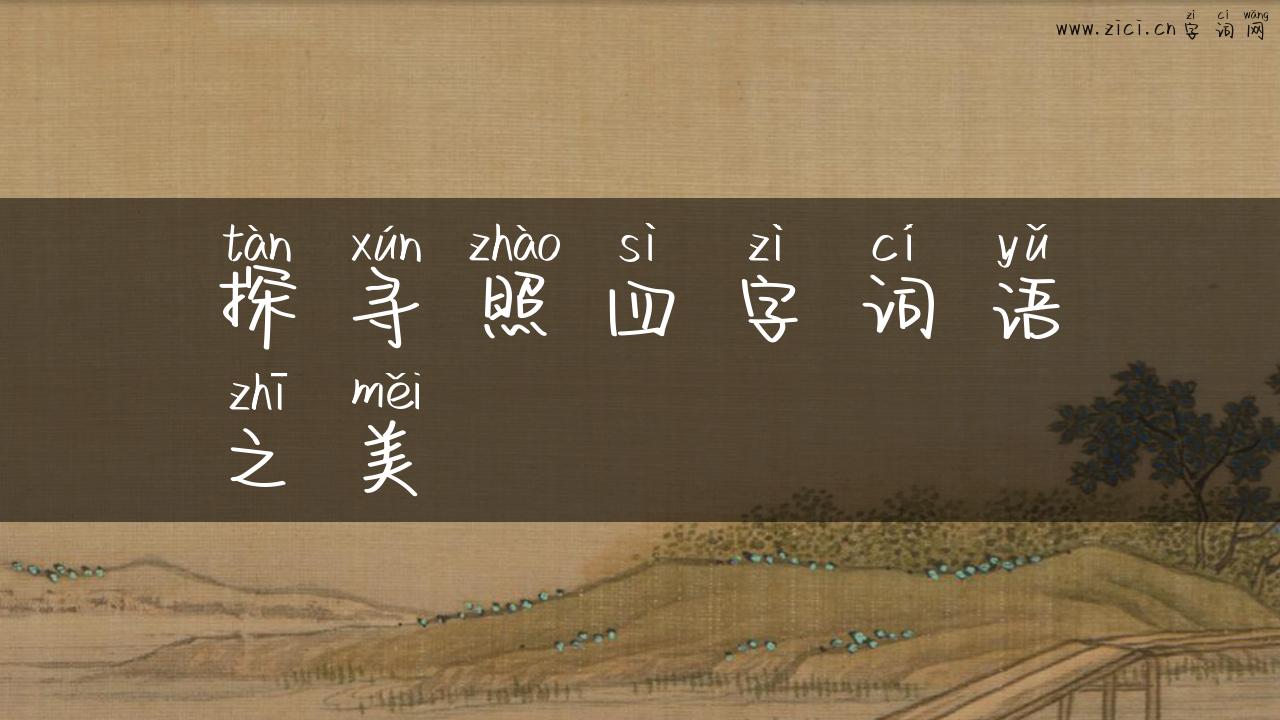 zì cí wǎng
www.zici.cn 字词网
tàn xún zhào sì zì cí yǔ
探寻照四字词语
zhī měi
之美